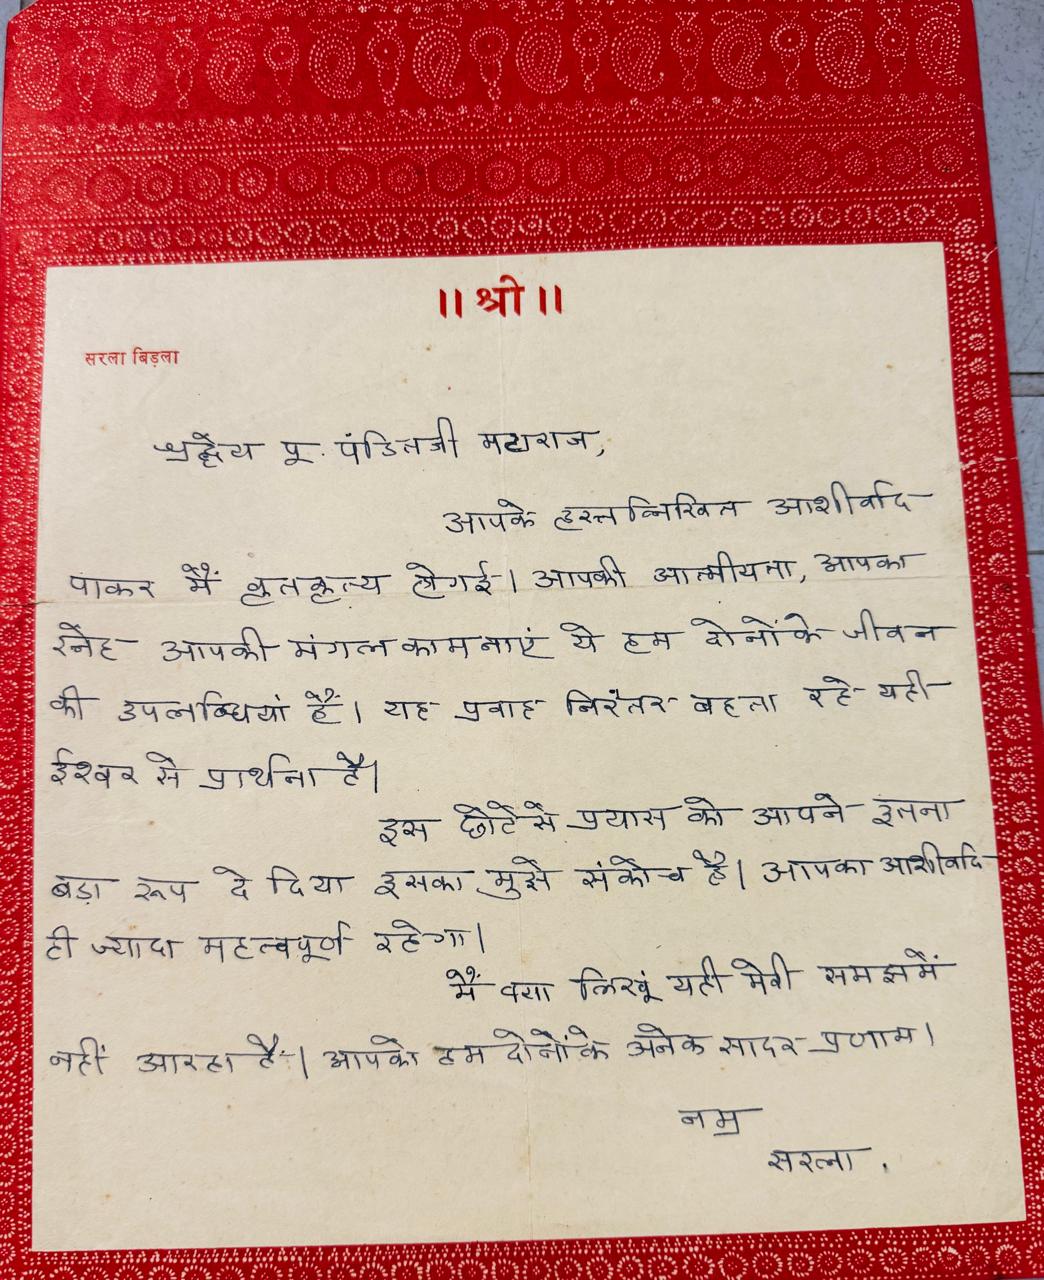 ॥ श्री ॥
सरला बिड़ला
श्रद्धेय पू. पंडितजी महाराज,
आपके हस्तलिखित आशीर्वाद
पाकर मैं कृतकृत्य होगई। आपकी आत्मीयता, आपका
स्नेह आपकी मंगल कामनाएं ये हम दोनों के जीवन
की उपलब्धियां हैं। यह प्रवाह निरंतर बहता रहे यही
ईश्वर से प्रार्थना है।
इस छोटे से प्रयास को आपने इतना
बड़ा रूप दे दिया इसका मुझे संकोच है। आपका आशीर्वाद
ही ज्यादा महत्वपूर्ण रहेगा।
मैं क्या लिखूं यही मेरी समझमें
नहीं आरहा है। आपको हम दोनोंके अनेक सादर प्रणाम।
नम्र
सरला.